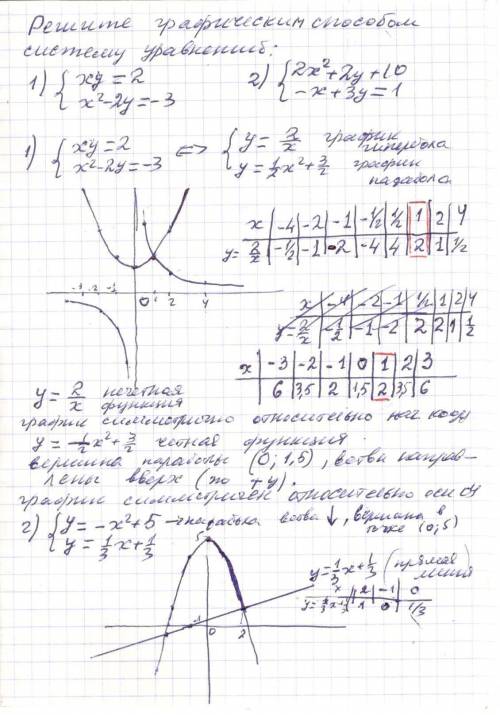 Решите графическим способом
систему уравнений:
1) { xy = 2
x² - 2y = -3
2) { 2x² + 2y + 10
-x + 3y = 1
1) { xy = 2
x² - 2y = -3
<=> { y = 2/x график гипербола
y = 1/2 x² + 3/2 график парабола
x | -4 | -2 | -1 | -1/2 | 1/2 | 1 | 2 | 4
y = 2/x | -1/2 | -1 | -2 | -4 | 4 | 2 | 1 | 1/2
x | -4 | -2 | -1 | 1/2 | 1 | 2 | 4
y = 2/x | -1/2 | -1 | -2 | 2 | 2 | 1 | 1/2
-2 -1 0 1 2 4
x | -3 | -2 | -1 | 0 | 1 | 2 | 3
6 | 3,5 | 2 | 1,5 | 2 | 3,5 | 6
y = 2/x нечетная функция
график симметрично относительно нач коор
y = 1/2 x² + 3/2 четная функция
вершина параболы (0; 1,5), ветви направ-
лены вверх (по +y).
график симметричен относительно оси oy
2) { y = -x² + 5 – парабола ветви ↓, вершина в точке (0; 5)
y = 1/3 x + 1/3
5
y = 1/3 x + 1/3 (прямая линия
x | 2 | -1 | 0
y = 1/3 x + 1/3 | 1 | 0 | 1/3
-1 0 2